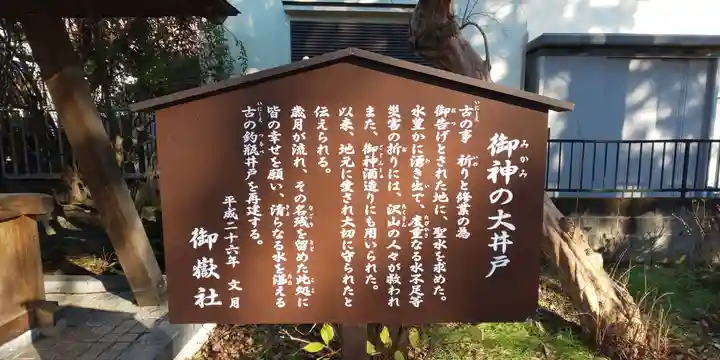 御神の大井戸
みかみ
古の事 祈りと修業の為
いにしえ
御告げとされた地に、聖水を求めた。
水豊かに湧き出て、度重なる水不足等
災害の折りには、沢山の人々が救われ
また、御神酒造りにも用いられた。
以来、地元に愛され大切に守られたと
伝えられる。
歳月が流れ、その名残を留めた此処に
皆の幸せを願い、清らなる水を湛える
古の釣瓶井戸を再建する。
いにしえ つるべ
平成二十六年 文月
御嶽社